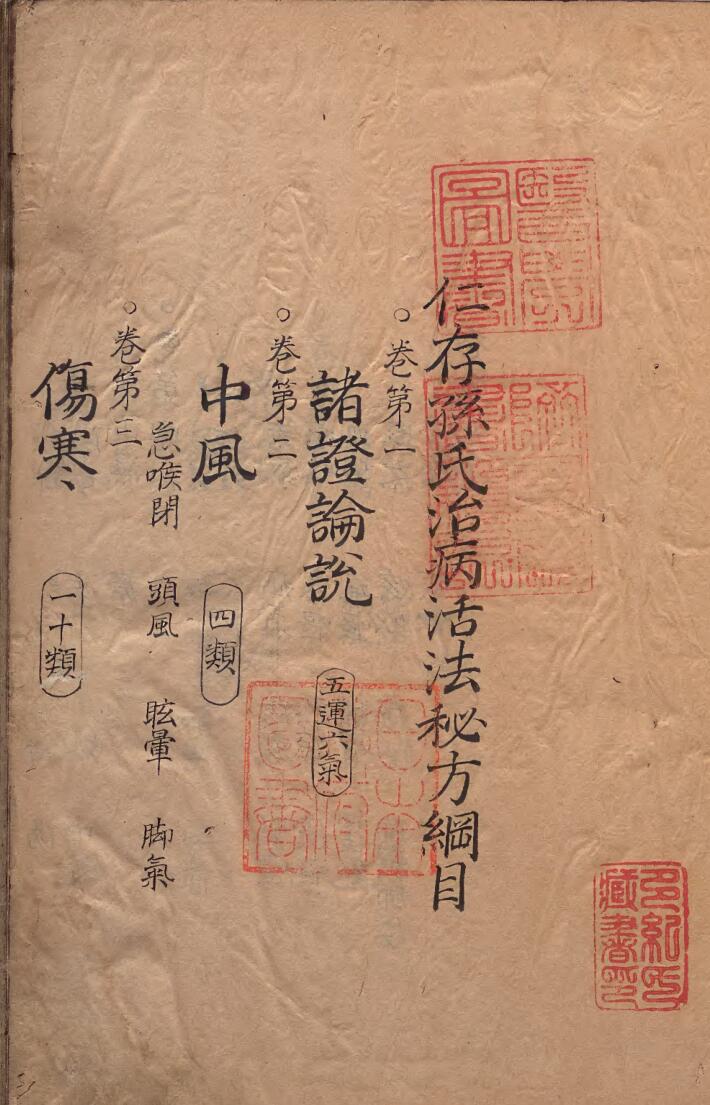 仁存孫氏治病活法秘方綱目
○卷第一
諸證論說 五運六氣
○卷第二
中風 四類
急喉閉 頭風 眩暈 脚氣
○卷第三
傷寒 一十類
醫學圖書
多紀氏藏書印